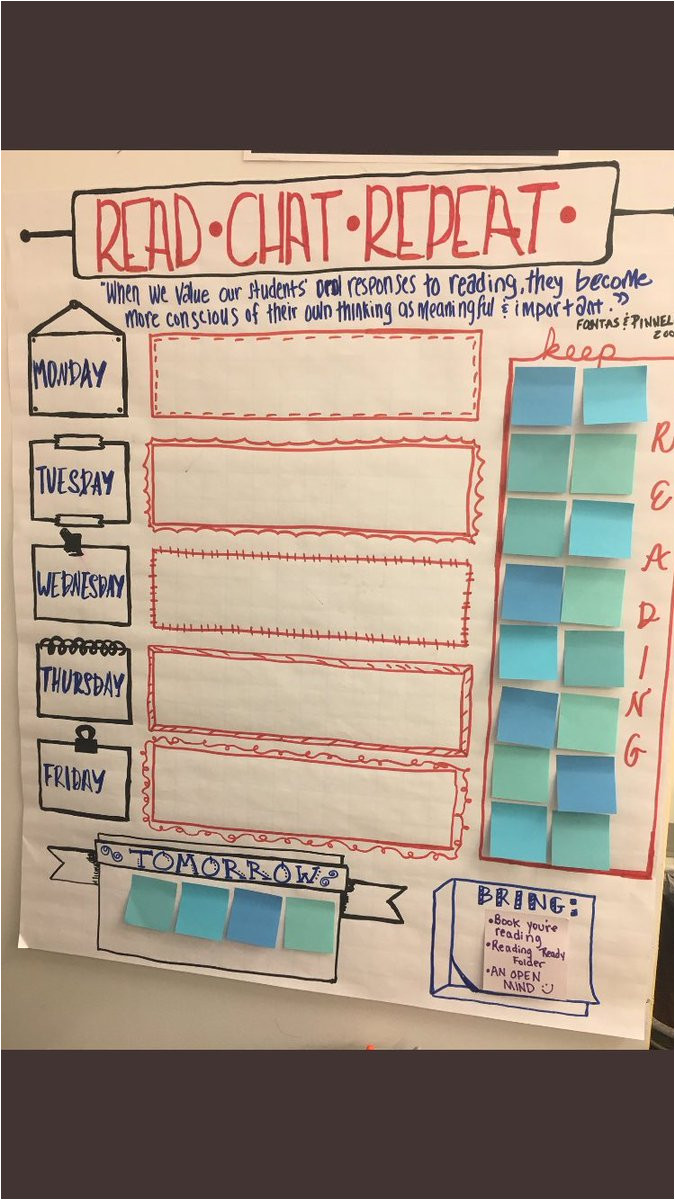 READ • CHAT • REPEAT •
"When we value our students' oral responses to reading, they become
more conscious of their own thinking as meaningful & important."
FONTAS & PINNEL
200
keep
READING
MONDAY
TUESDAY
WEDNESDAY
THURSDAY
FRIDAY
TOMORROW
BRING:
• Book you're
reading
• Reading Ready
Folder
• AN OPEN
MIND